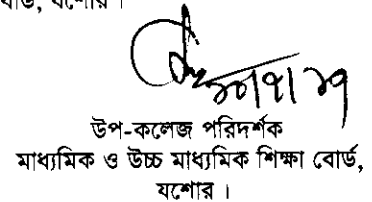 বোর্ড, যশোর।
উপ-কলেজ পরিদর্শক
মাধ্যমিক ও উচ্চ মাধ্যমিক শিক্ষা বোর্ড,
যশোর ।